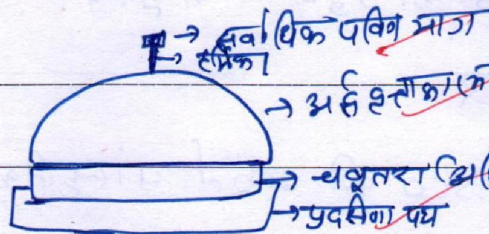 → सर्वाधिक पवित्र भाग
→ हर्मिका
→ अर्ध
→ चबूतरा (
→ प्रदक्षिणा पथ